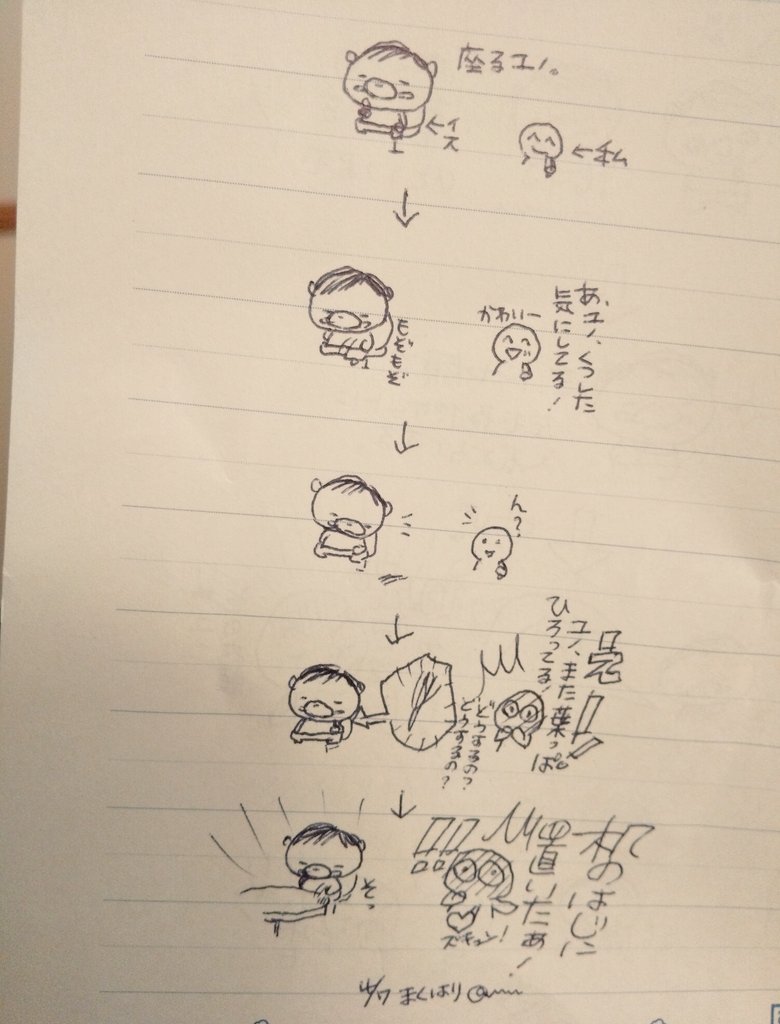 座るユノ。
←イス
←私
あ、ユノ、くつした
気にしてる!
かわいー
もぞもぞ
ん?
ユノ、また葉っぱ
ひろってる!
どうするの?
どうするの?
机のはじに
置いたぁ!
ズキュン!
そっ
4/7 まくはり